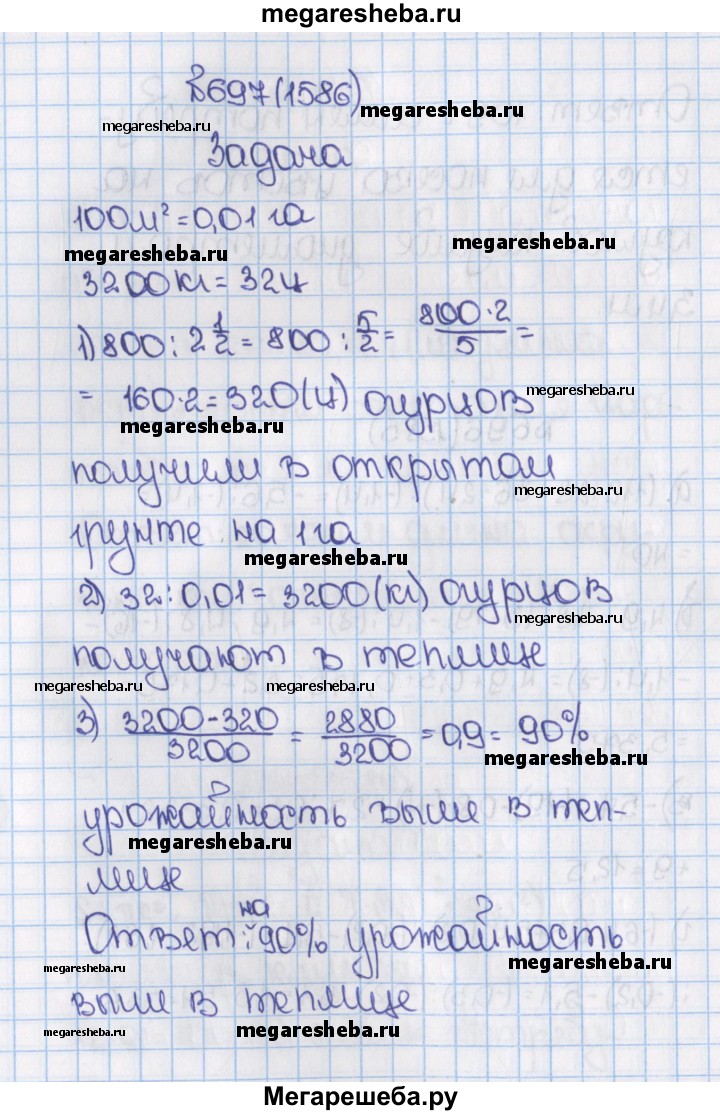 megaresheba.ru
№697(1586)
megaresheba.ru
megaresheba.ru
Задача
100м² = 0,01 га
megaresheba.ru
megaresheba.ru
3200кг = 32ц
1) 800 : 2 1/2 = 800 : 5/2 = 800·2/5 =
= 160·2 = 320(ц) огурцов
megaresheba.ru
megaresheba.ru
получили в открытом
megaresheba.ru
грунте на 1 га
megaresheba.ru
2) 32 : 0,01 = 3200(кг) огурцов
megaresheba.ru
получают в теплице
megaresheba.ru megaresheba.ru
3) 3200-320/3200 = 2880/3200 = 0,9 = 90%
megaresheba.ru
урожайность выше в теп-
megaresheba.ru
лице
Ответ: на 90% урожайность
megaresheba.ru megaresheba.ru
выше в теплице
megaresheba.ru megaresheba.ru
Мегарешеба.ру